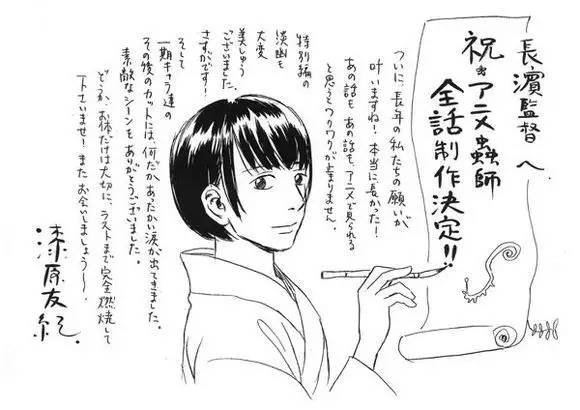 長濵監督へ
祝☆アニメ蟲師
全話制作決定!!
ついに、長年の私たちの願いが
叶いますね! 本当に長かった!
あの話も、あの話も、アニメで見られる
と思うとワクワクが止まりません。
特別編の
淡幽も
大変
美しゅう
ございました。
さすがです!
そして
一期キャラ達の
その後のカットには 何だか、あったかい涙が出てきました。
素敵なシーンを ありがとうございました。
どうか、お体だけは大切に、ラストまで完全燃焼して
下さいませ! また お会いしましょう〜。
漆原友紀.